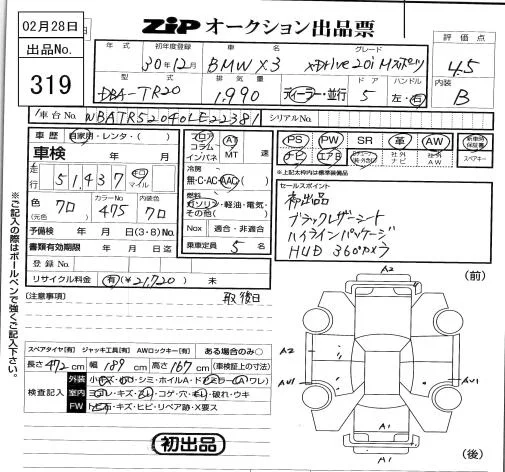 02月28日
ZIP オークション出品票
出品No.
319
年式 初年度登録 車名 グレード 評価点
30年12月 BMW X3 xDrive20i Mスポーツ 4.5
型式 排気量 ドア ハンドル 内装
DBA-TR20 1,990 ディーラー・並行 5 左・右 B
車台No. WBATR52040LE22381 シリアルNo.
車歴 自家用・レンタ・( )
フロア コラム インパネ AT MT 速
車検 年 月
PS PW SR 革 AW
ナビ エアB 社外ナビ 社外AW スペアキー
※上記太枠内は標準装備品
走行 51,437 キロ マイル
冷房 無・C・AC・AAC
色 (元色) クロ カラーNo. 475 内装色 クロ
燃料 ガソリン・軽油・電気・その他( )
セールスポイント
初出品
ブラックレザーシート
ハイラインパッケージ
HUD 360°カメラ
予備検 年 月 日(3・8)No.
Nox 適合・非適合
書類有効期限 年 月 日迄
乗車定員 5 名
登録No.
リサイクル料金 有(¥21,720) 未
※ご記入の際はボールペンで強くご記入下さい。
(注意事項) 取後日
A2 (前)
A2
AU1 AU1
A1
A1 (後)
スペアタイヤ[有] ジャッキ工具[有] AWロックキー[有] ある場合のみ○
長さ 472 cm 幅 189 cm 高さ 167 cm (車検証上の寸法)
検査記入 外装 小キズ・凹・シミ・ホイルA・ドアミラー(A ワレ)
室内 ヨゴレ・キズ・スレ・コゲ・穴・モレ・破れ・ウキ
FW トビ石・キズ・ヒビ・リペア跡・X要ス
初出品